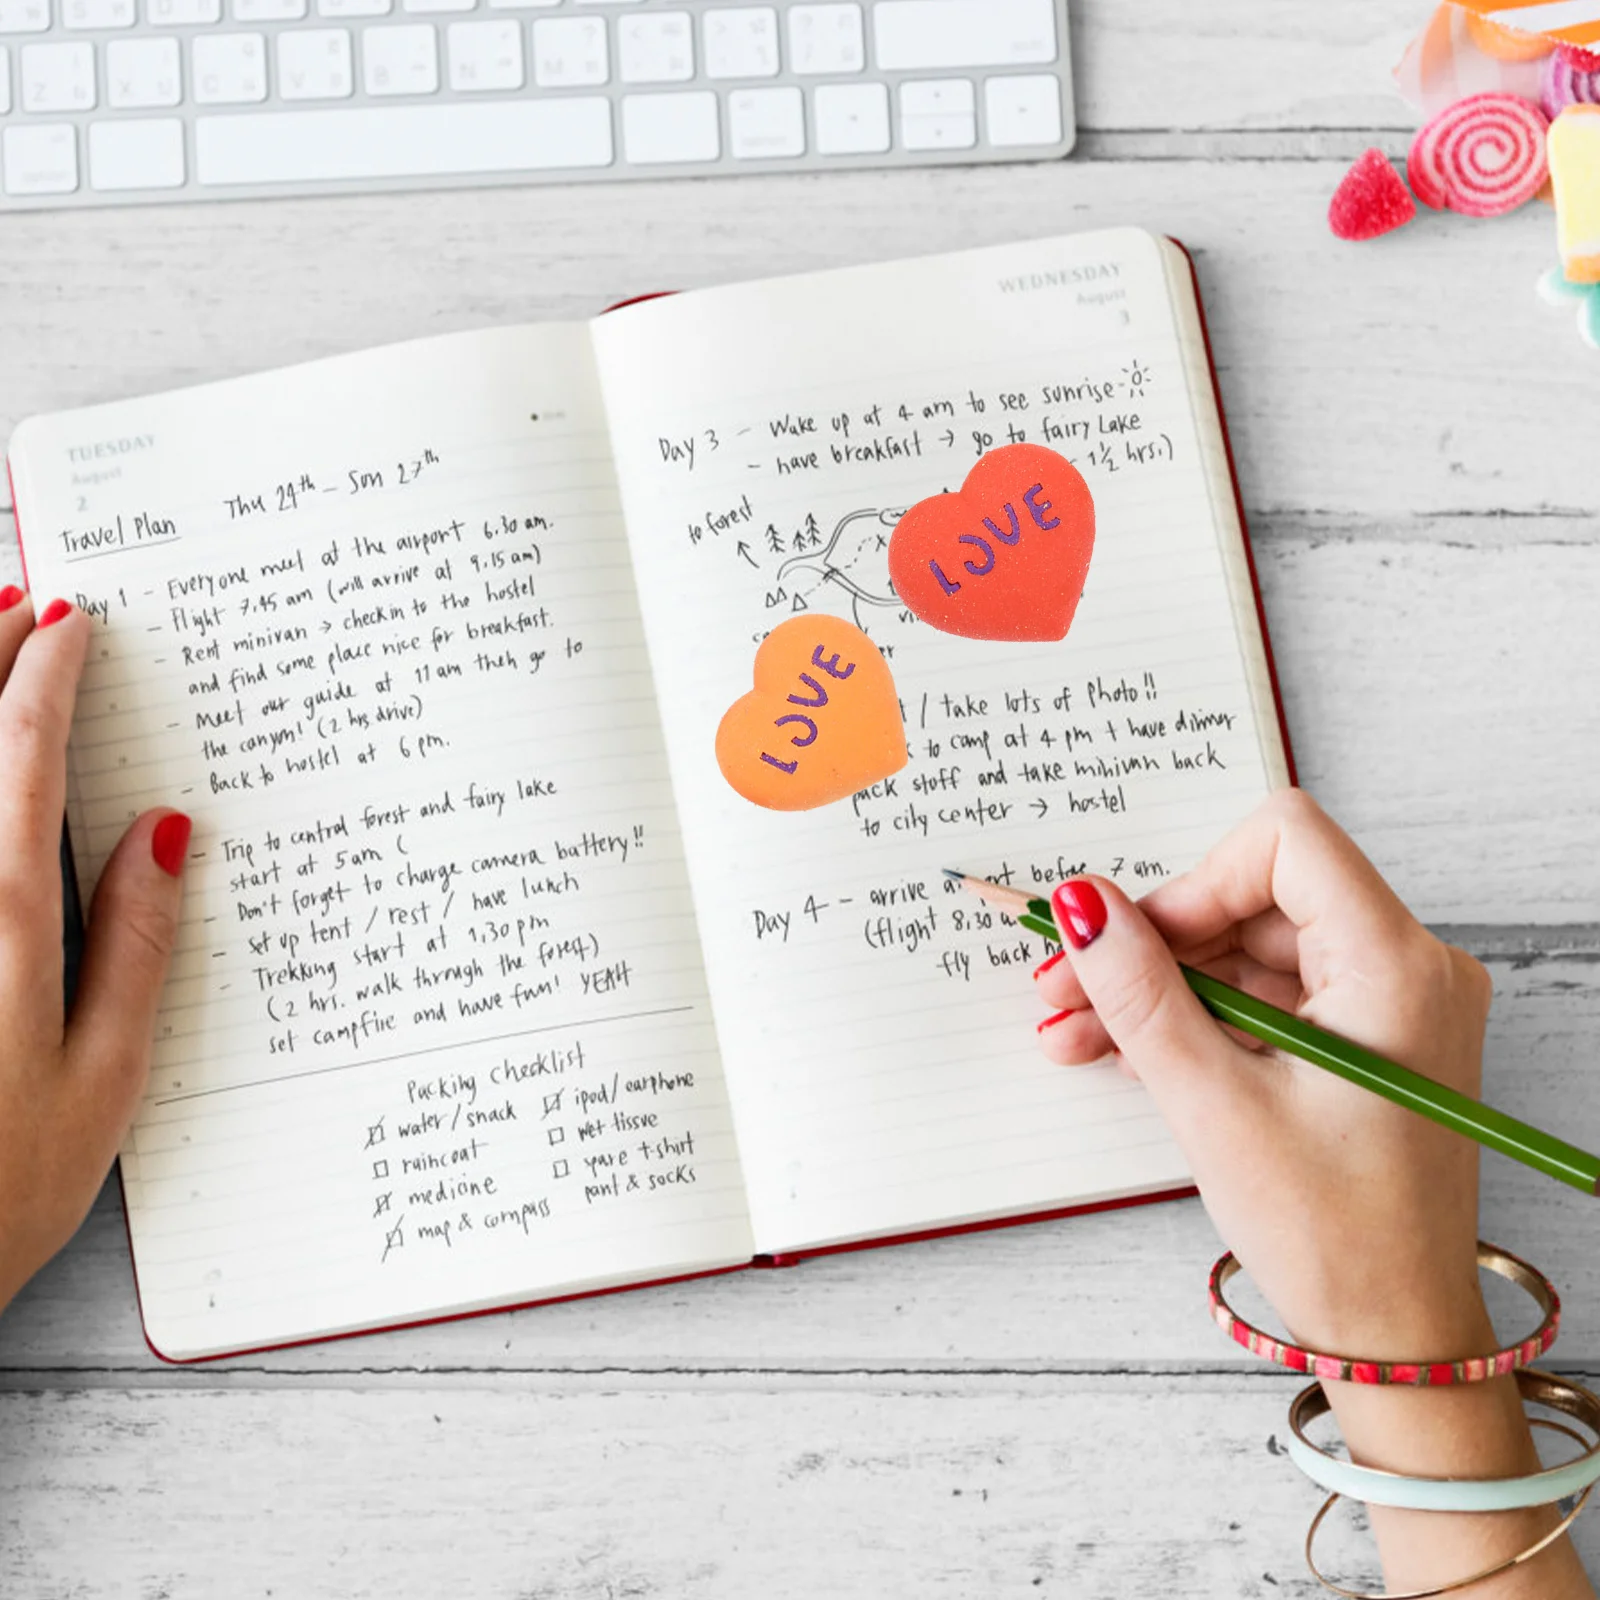 TUESDAY
August
2
Thu 24th - Sun 27th
Travel Plan
Day 1 - Everyone meet at the airport 6.30 am.
- Flight 7.45 am (will arrive at 9.15 am)
- Rent minivan → checkin to the hostel
and find some place nice for breakfast.
- Meet our guide at 11 am then go to
the canyon! (2 hrs drive)
- Back to hostel at 6 pm.
- Trip to central forest and fairy lake
start at 5am (
- Don't forget to charge camera battery!!
- set up tent / rest / have lunch
- Trekking start at 1.30 pm
(2 hrs. walk through the forest)
set campfire and have fun! YEAH
Packing checklist
water/snack
raincoat
medicine
map & compass
ipod/earphone
wet tissue
spare t-shirt
pant & socks
WEDNESDAY
August
3
Day 3 - Wake up at 4 am to see sunrise
- have breakfast → go to fairy Lake
1½ hrs.)
to forest
LOVE
LOVE
/ take lots of photo!!
to camp at 4 pm + have dinner
pack stuff and take minivan back
to city center → hostel
Day 4 - arrive before 7 am.
(flight 8.30
fly back